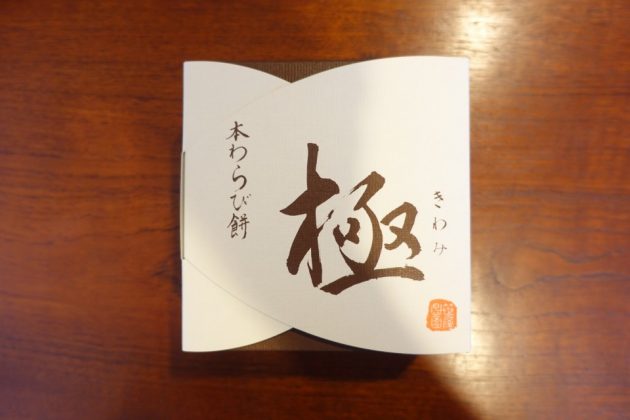 極
きわみ
本わらび餅